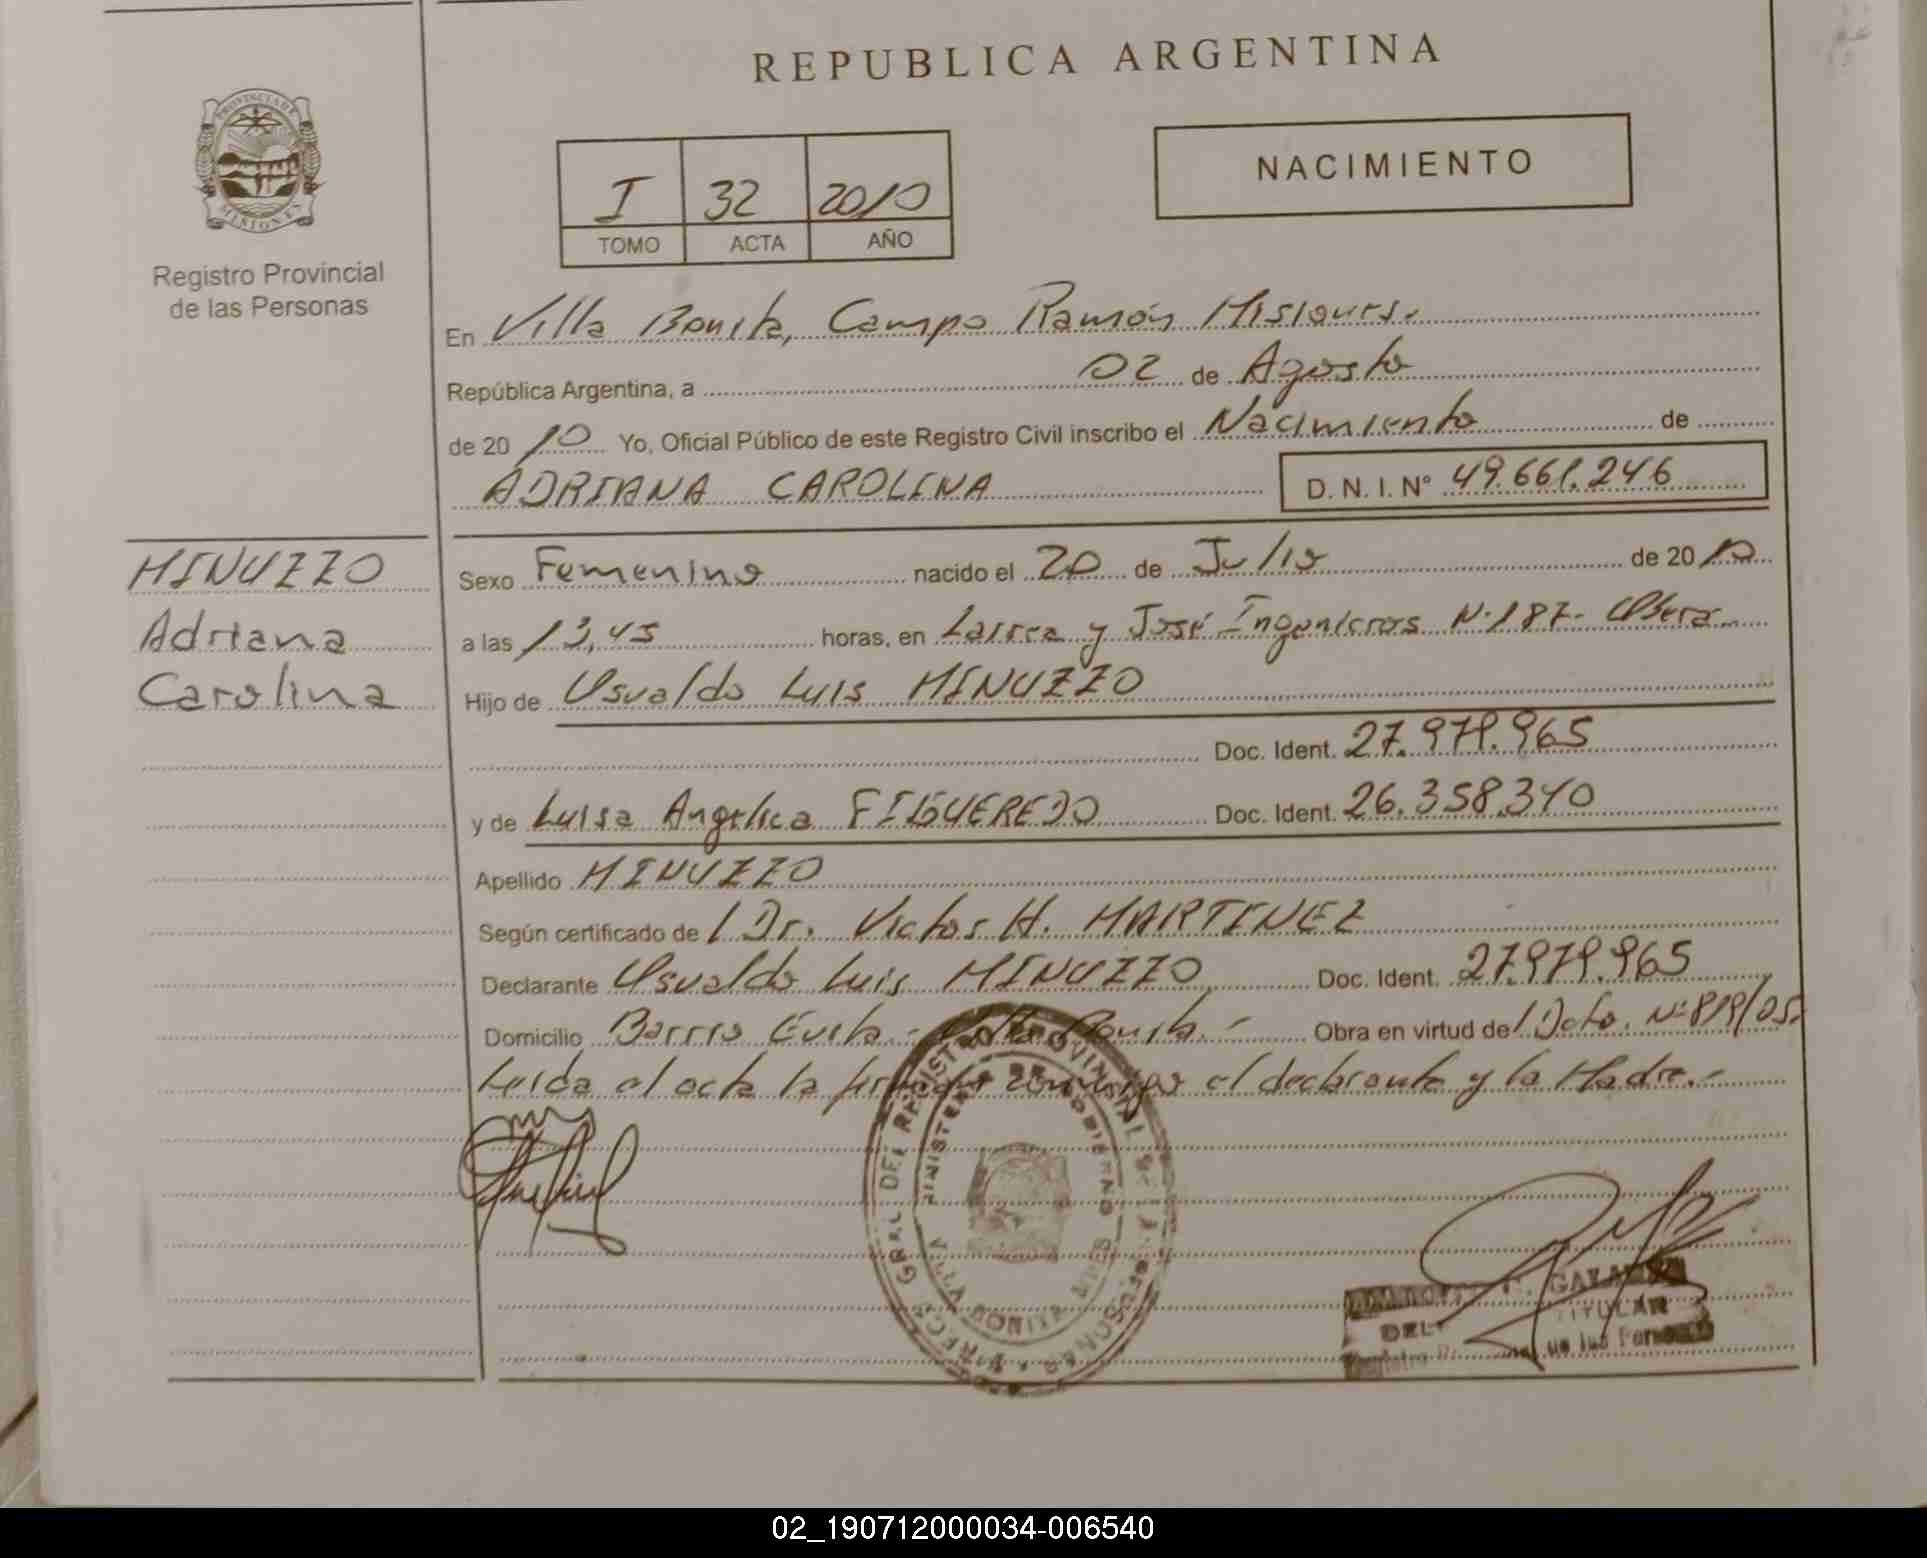 REPUBLICA ARGENTINA
PROVINCIA DE
MISIONES
Registro Provincial
de las Personas
I 32 2010
TOMO ACTA AÑO
NACIMIENTO
En Villa Bonita, Campo Ramón Misiones.
República Argentina, a 02 de Agosto
de 2010 Yo, Oficial Público de este Registro Civil inscribo el Nacimiento de
ADRIANA CAROLINA D. N. I. Nº 49.661.246
MINUZZO
Adriana
Carolina
Sexo Femenino nacido el 20 de Julio de 2010
a las 13,45 horas, en Larrea y José Ingenieros Nº 187- Oberá
Hijo de Osvaldo Luis MINUZZO
Doc. Ident. 27.979.965
y de Luisa Angelica FIGUEREDO Doc. Ident. 26.358.340
Apellido MINUZZO
Según certificado de / Dr. Victor H. MARTINEZ
Declarante Osvaldo Luis MINUZZO Doc. Ident. 27.979.965
Domicilio Barrio Evita.- Villa Bonita.- Obra en virtud de / Dcto. Nº 819/05.
Leída el acta la firman conmigo el declarante y la Madre.-
DIRECC. GRAL. DEL REGISTRO PROVINCIAL DE LAS PERSONAS
MINISTERIO DE GOBIERNO
VILLA BONITA
TITULAR
02_190712000034-006540